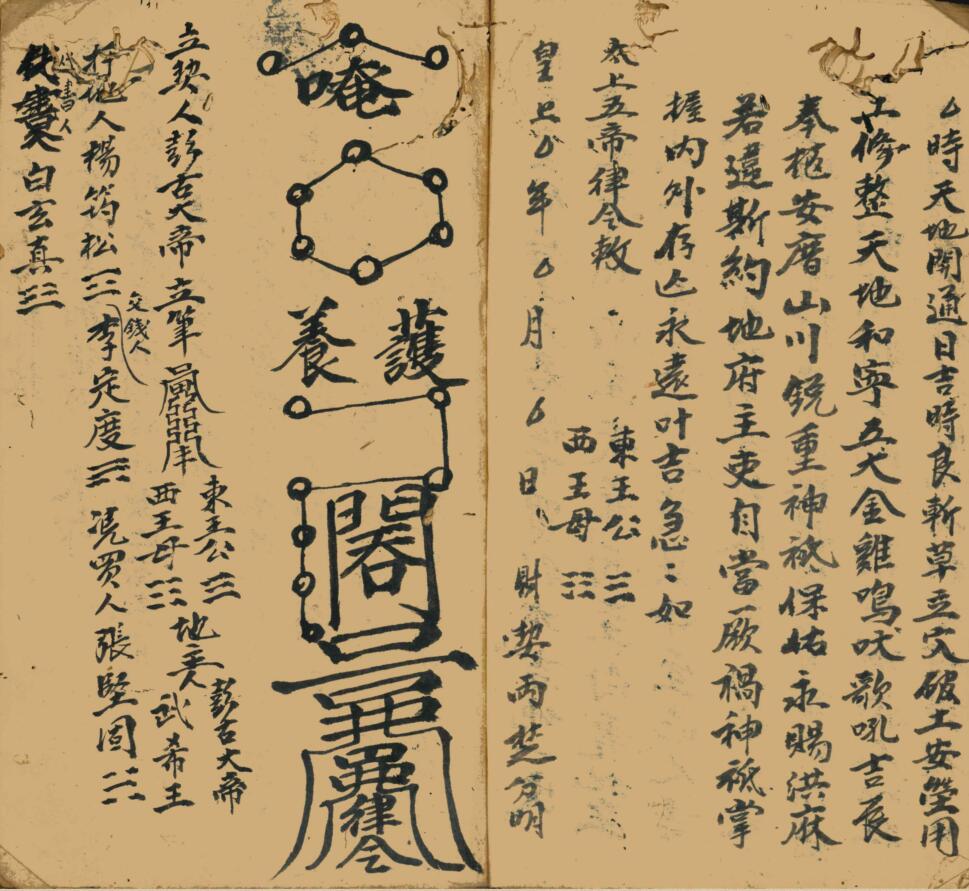 時天地開通日吉時良斬草立穴破土安塋用
工修整天地和寧五犬金雞鳴吠歌吼吉辰
奉柩安厝山川銳重神祇保姑永賜洪庥
若違斯約地府主吏自當厥禍神祇掌
握内外存亡永遠叶吉急：如
太上五帝律令敕 東王公 西王母
皇上 年 月 日 財契両楚分明
唵
護養
律令
立契人彭古大帝立筆 東王公 西王母 地主 彭古大帝 武希王
折地人楊筠松 交錢人 李定度 憑買人張堅固
代書人白玄真